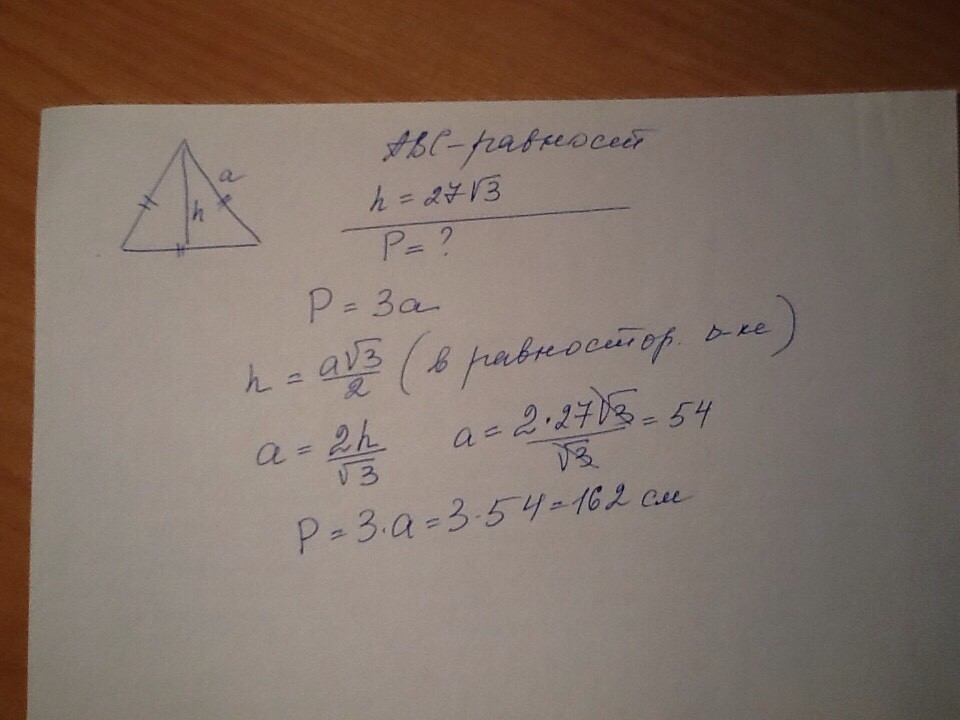 a
h
ABC-равност
h = 27√3
P = ?
P = 3a
h = a√3/2 (в равностор. ∆-ке)
a = 2h/√3 a = 2·27√3/√3 = 54
P = 3·a = 3·54 = 162 см